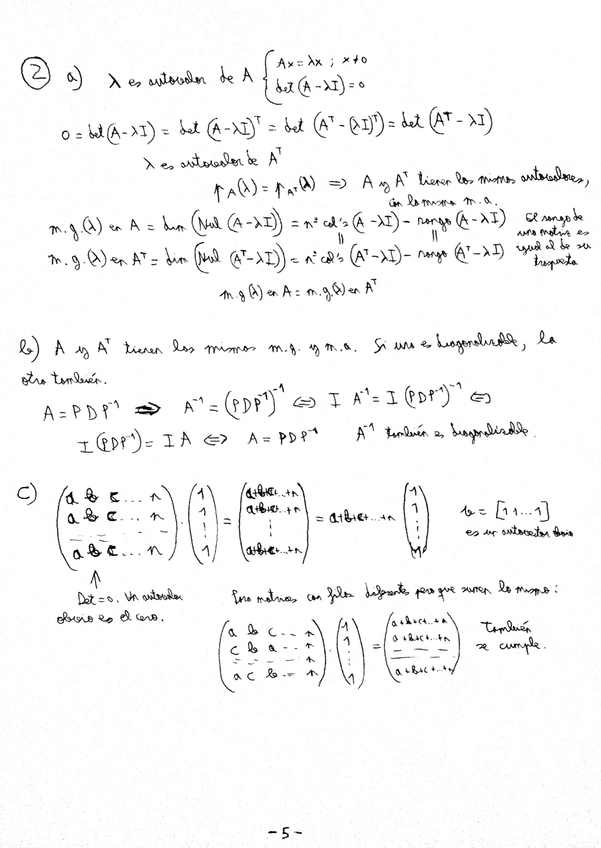 ② a) λ es autovalor de A { Ax = λx ; x≠0
det (A-λI) = 0
0 = det (A-λI) = det (A-λI)ᵀ = det (Aᵀ-(λI)ᵀ) = det (Aᵀ-λI)
λ es autovalor de Aᵀ
p_A(λ) = p_Aᵀ(λ) ⇒ A y Aᵀ tienen los mismos autovalores,
con la misma m.a.
m.g.(λ) en A = dim (Nul (A-λI)) = nº col's (A-λI) - rango (A-λI) El rango de
una matriz es
m.g.(λ) en Aᵀ = dim (Nul (Aᵀ-λI)) = nº col's (Aᵀ-λI) - rango (Aᵀ-λI) igual al de su
traspuesta
m.g(λ) en A = m.g.(λ) en Aᵀ
b) A y Aᵀ tienen los mismos m.g. y m.a. Si uno es diagonalizable, la
otra también.
A = PDP⁻¹ ⇒ A⁻¹ = (PDP⁻¹)⁻¹ ⇔ I A⁻¹ = I (PDP⁻¹)⁻¹ ⇔
I (PDP⁻¹) = I A ⇔ A = PDP⁻¹ A⁻¹ también es diagonalizable.
c) (a b c ... n) (1) (a+b+c+...+n) (1)
(a b c ... n) · (1) = (a+b+c+...+n) = a+b+c+...+n (1) v = [1 1 ... 1]
(a b c ... n) (1) (a+b+c+...+n) (1) es un autovector obvio
↑
Det = 0. Un autovalor
obvio es el cero.
Para matrices con filas diferentes pero que suman lo mismo:
(a b c ... n) (1) (a+b+c+...+n)
(c b a ... n) · (1) = (a+b+c+...+n) También
(a c b ... n) (1) (a+b+c+...+n) se cumple.
-5-